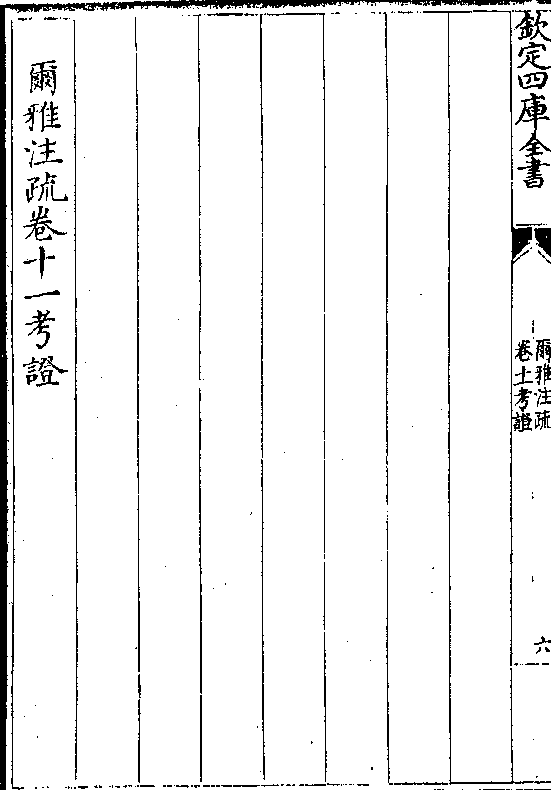 欽定四庫全書
爾雅注疏
卷十一考證
六
爾雅注疏卷十一考證